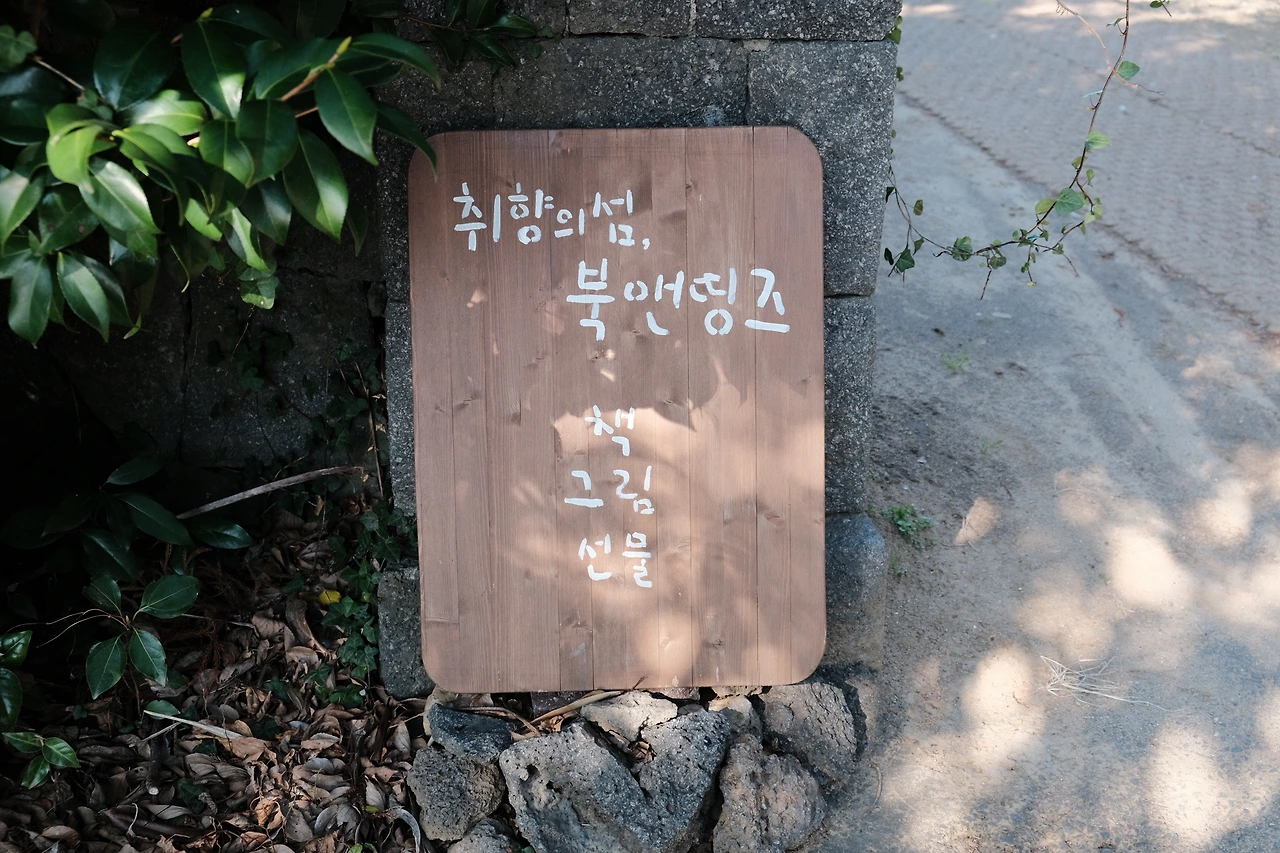 취향의섬,
북앤띵즈
책
그림
선물